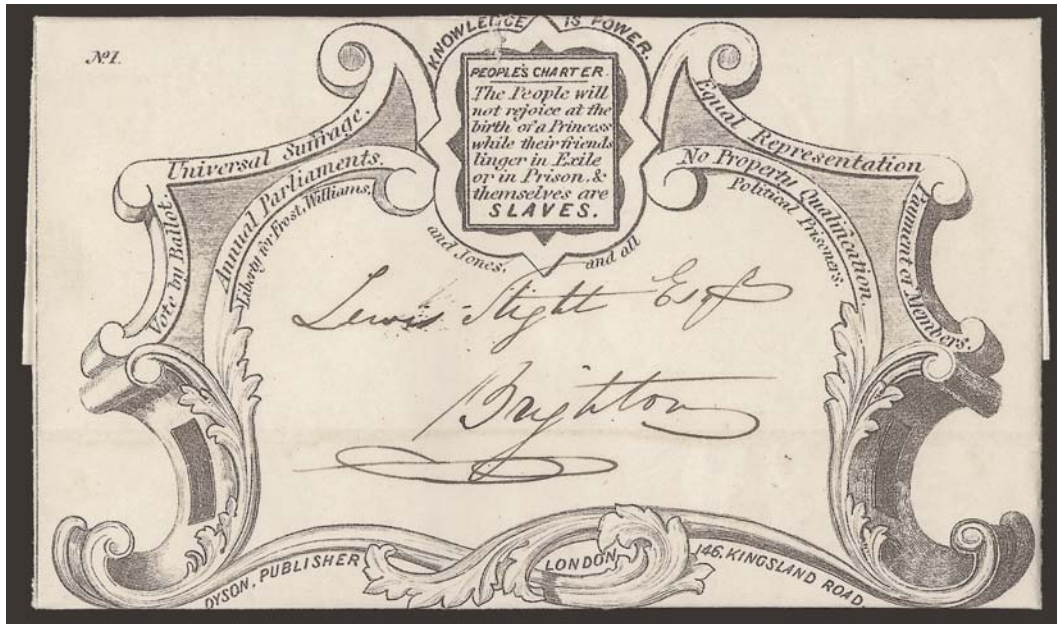 No. 1.
KNOWLEDGE IS POWER.
PEOPLE'S CHARTER.
The People will
not rejoice at the
birth of a Princess
while their friends
linger in Exile
or in Prison, &
themselves are
SLAVES.
Vote by Ballot.
Universal Suffrage.
Annual Parliaments.
Equal Representation
No Property Qualification.
Payment of Members.
Liberty for Frost, Williams,
and Jones,
and all
Political Prisoners.
Lewis Slight Esqr
Brighton
DYSON, PUBLISHER
LONDON
146, KINGSLAND ROAD.